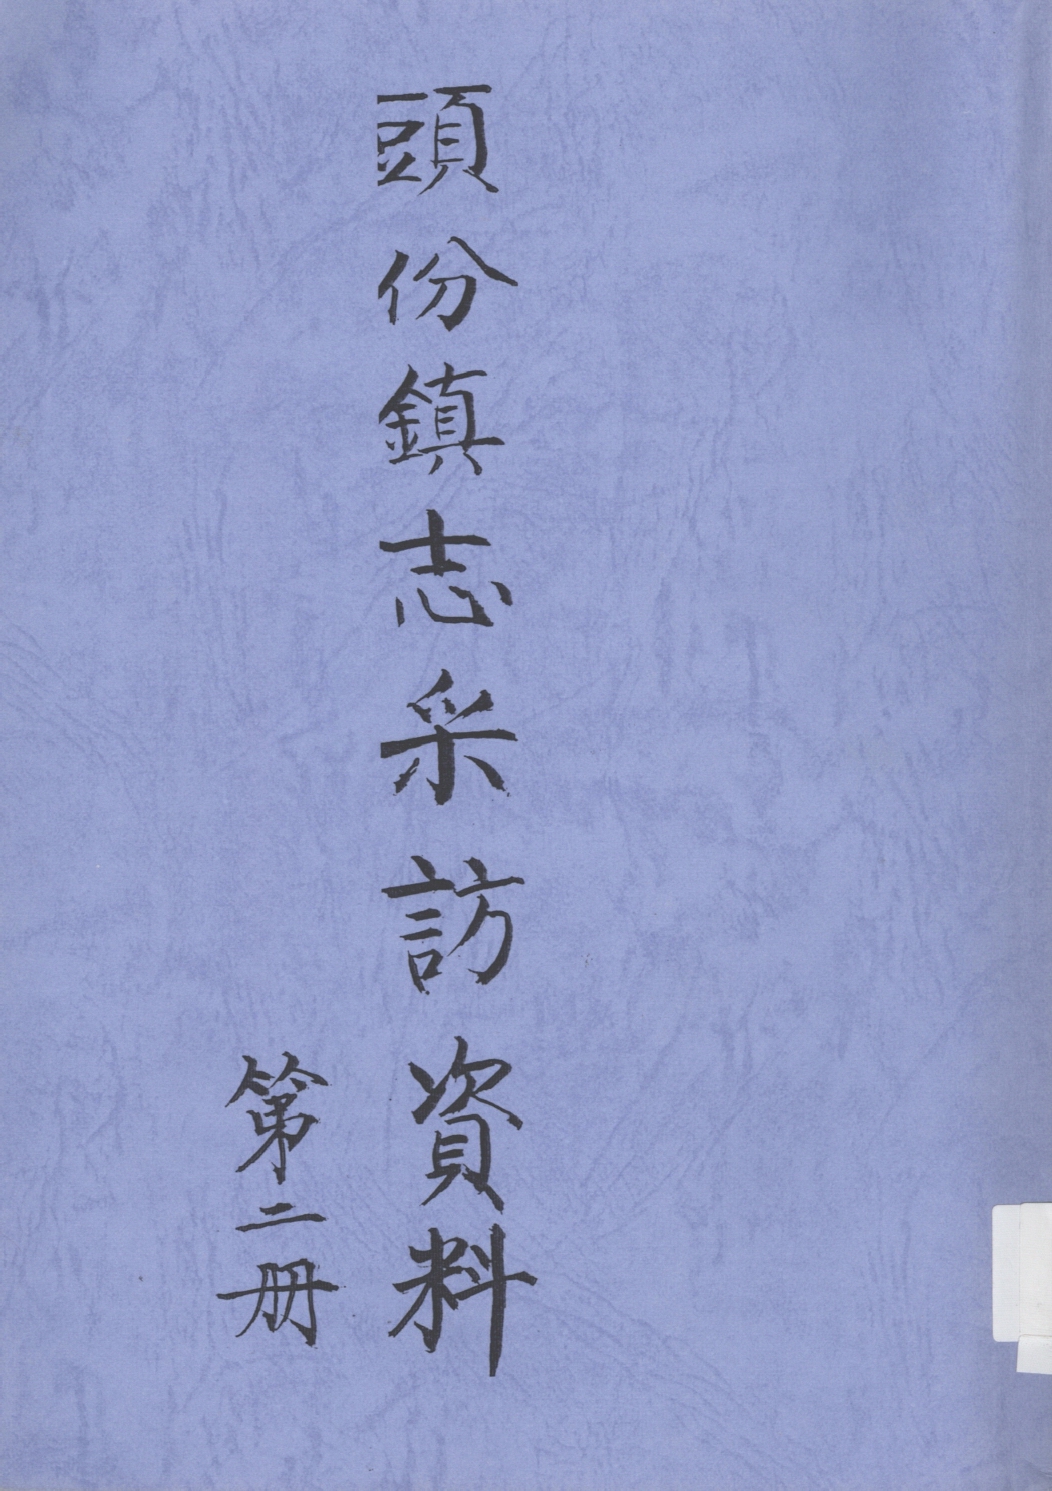 頭份鎮志采訪資料
第二册